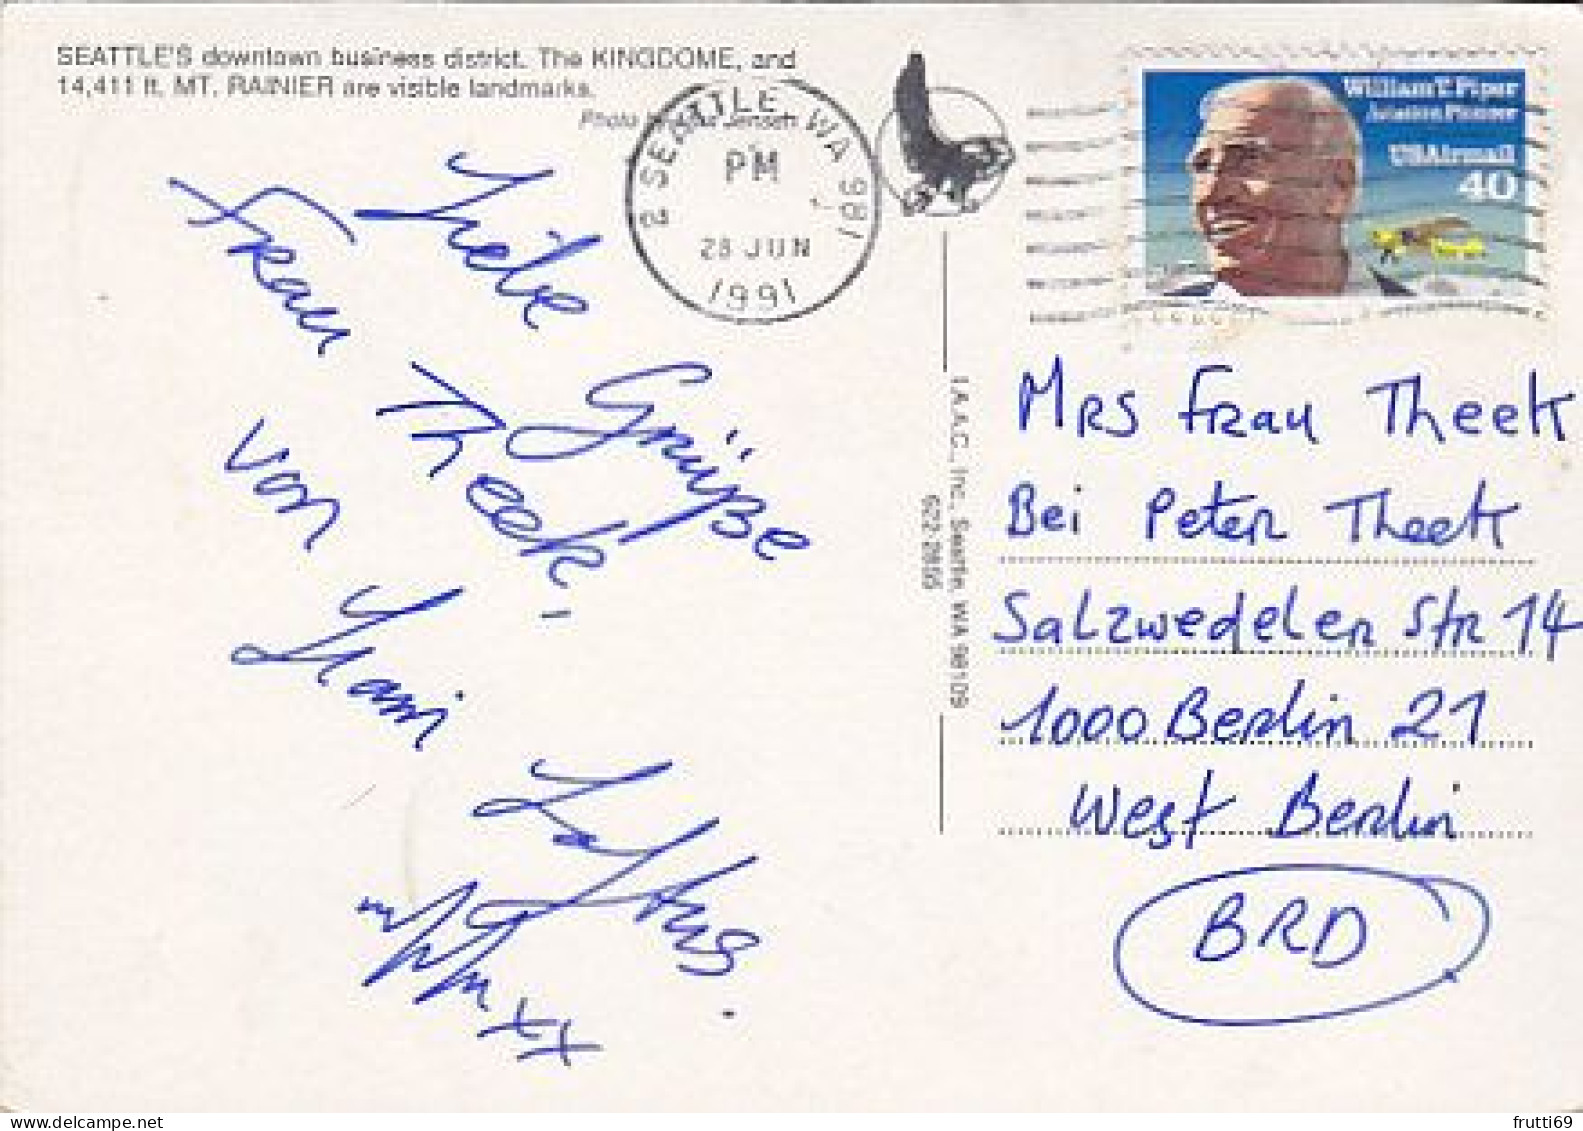 SEATTLE'S downtown business district. The KINGDOME, and
14,411 ft. MT. RAINIER are visible landmarks.
Photo Jensen
SEATTLE, WA 981
PM
28 JUN
1991
William T. Piper
Aviation Pioneer
USAirmail
40
Liebe Grüße
Frau Theek,
von
I.A.A.C., Inc., Seattle, WA 98109
622-2855
MRS Frau Theek
Bei Peter Theek
Salzwedeler Str 14
1000 Berlin 21
West Berlin
BRD
frutti69